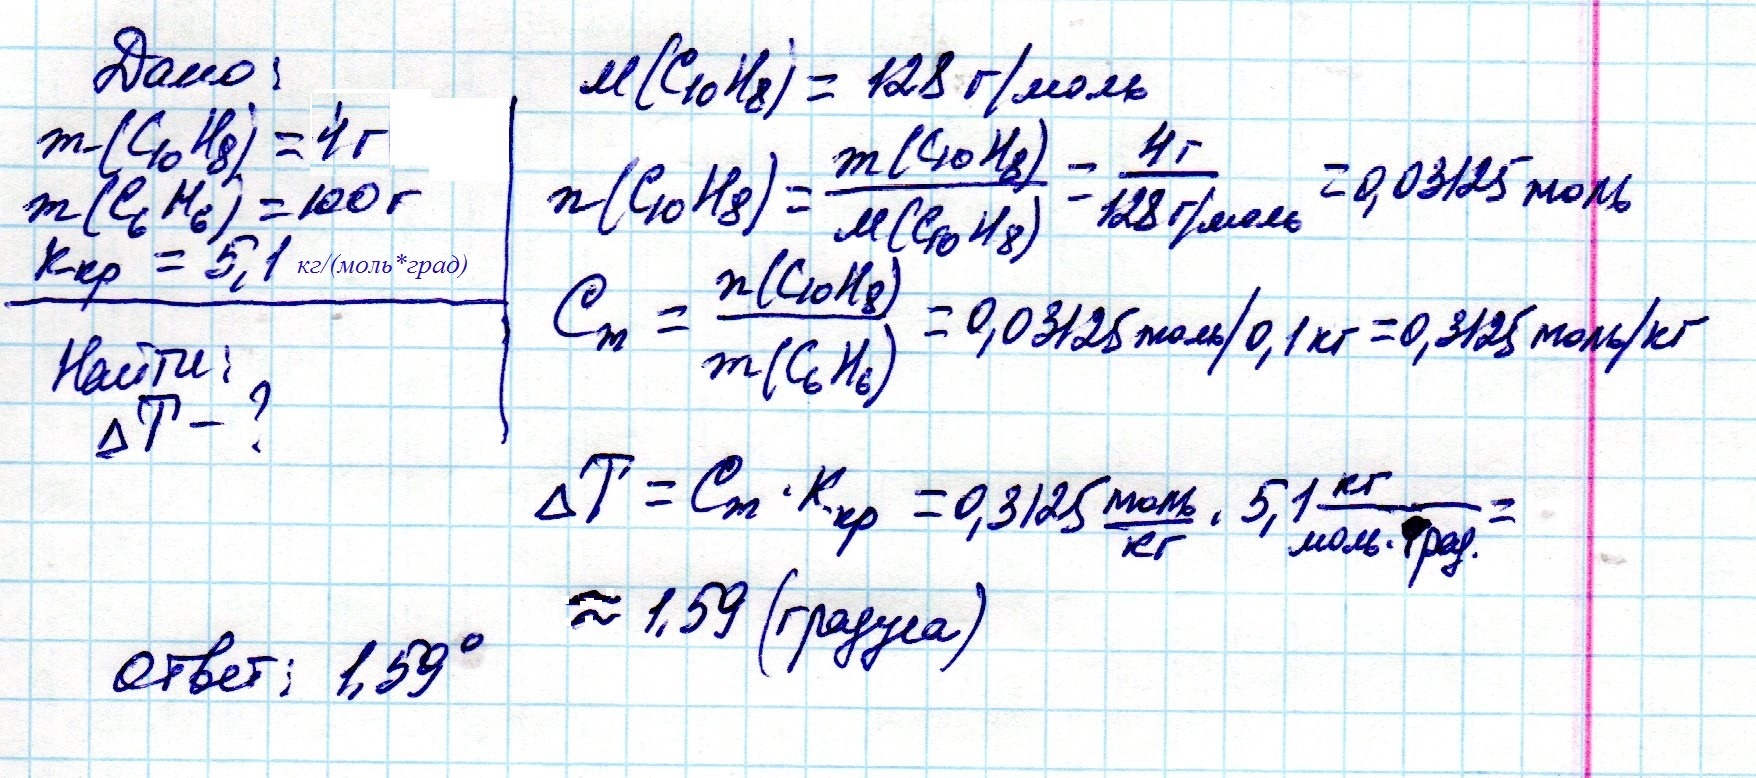 Дано:
m(C₁₀H₈) = 4г
m(C₆H₆) = 100г
Kкр = 5,1 кг/(моль*град)
Найти:
ΔT - ?
M(C₁₀H₈) = 128 г/моль
n(C₁₀H₈) = m(C₁₀H₈) / M(C₁₀H₈) = 4г / 128 г/моль = 0,03125 моль
Cm = n(C₁₀H₈) / m(C₆H₆) = 0,03125 моль/0,1 кг = 0,3125 моль/кг
ΔT = Cm · Kкр = 0,3125 моль/кг · 5,1 кг/моль·град. =
≈ 1,59 (градуса)
Ответ: 1,59°